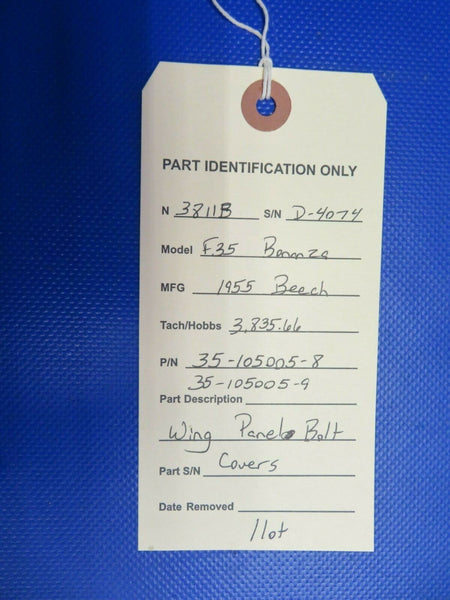 PART IDENTIFICATION ONLY
N 3811B S/N D-4074
Model F35 Bonanza
MFG 1955 Beech
Tach/Hobbs 3,835.66
P/N 35-105005-8
35-105005-9
Part Description
Wing Panel Bolt
Part S/N Covers
Date Removed
1 lot